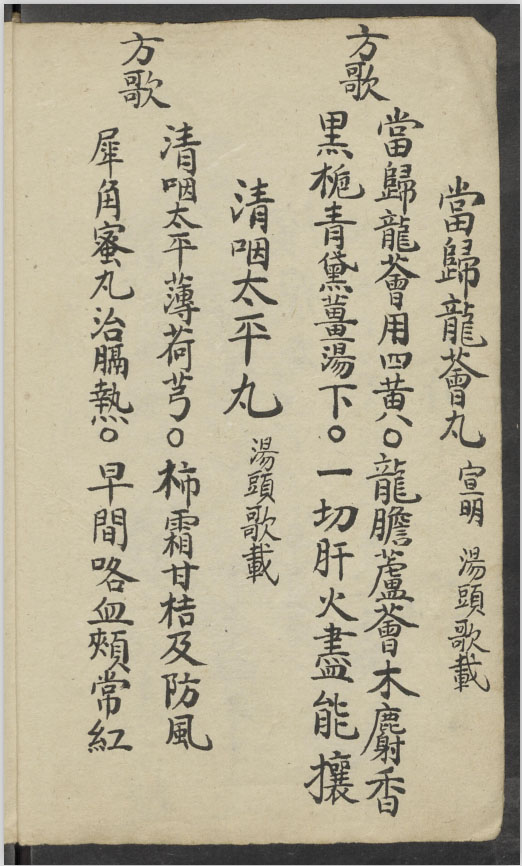 當歸龍薈丸 宣明 湯頭歌載
方歌
當歸龍薈用四黄。龍膽蘆薈木麝香
黑梔青黛薑湯下。一切肝火盡能攘
清咽太平丸 湯頭歌載
方歌
清咽太平薄荷芎。柿霜甘桔及防風
犀角蜜丸治膈熱。早間咯血頰常紅